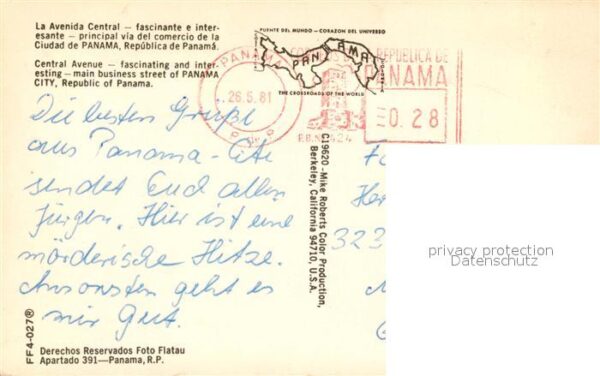 La Avenida Central — fascinante e inter-
esante — principal vía del comercio de la
Ciudad de PANAMA, República de Panamá.
Central Avenue — fascinating and inter-
esting — main business street of PANAMA
CITY, Republic of Panama.
PUENTE DEL MUNDO - CORAZON DEL UNIVERSO
PANAMA
THE CROSSROADS OF THE WORLD
PANAMA
26.5.81
REPUBLICA DE
PANAMA
0.28
Die besten Grüße
aus Panama-City
sendet Euch allen
Jürgen. Hier ist eine
mörderische Hitze.
Ansonsten geht es
mir Gut.
C19620 - Mike Roberts Color Production,
Berkeley, California 94710, U.S.A.
323
privacy protection
Datenschutz
FF4-027®
Derechos Reservados Foto Flatau
Apartado 391—Panama, R.P.